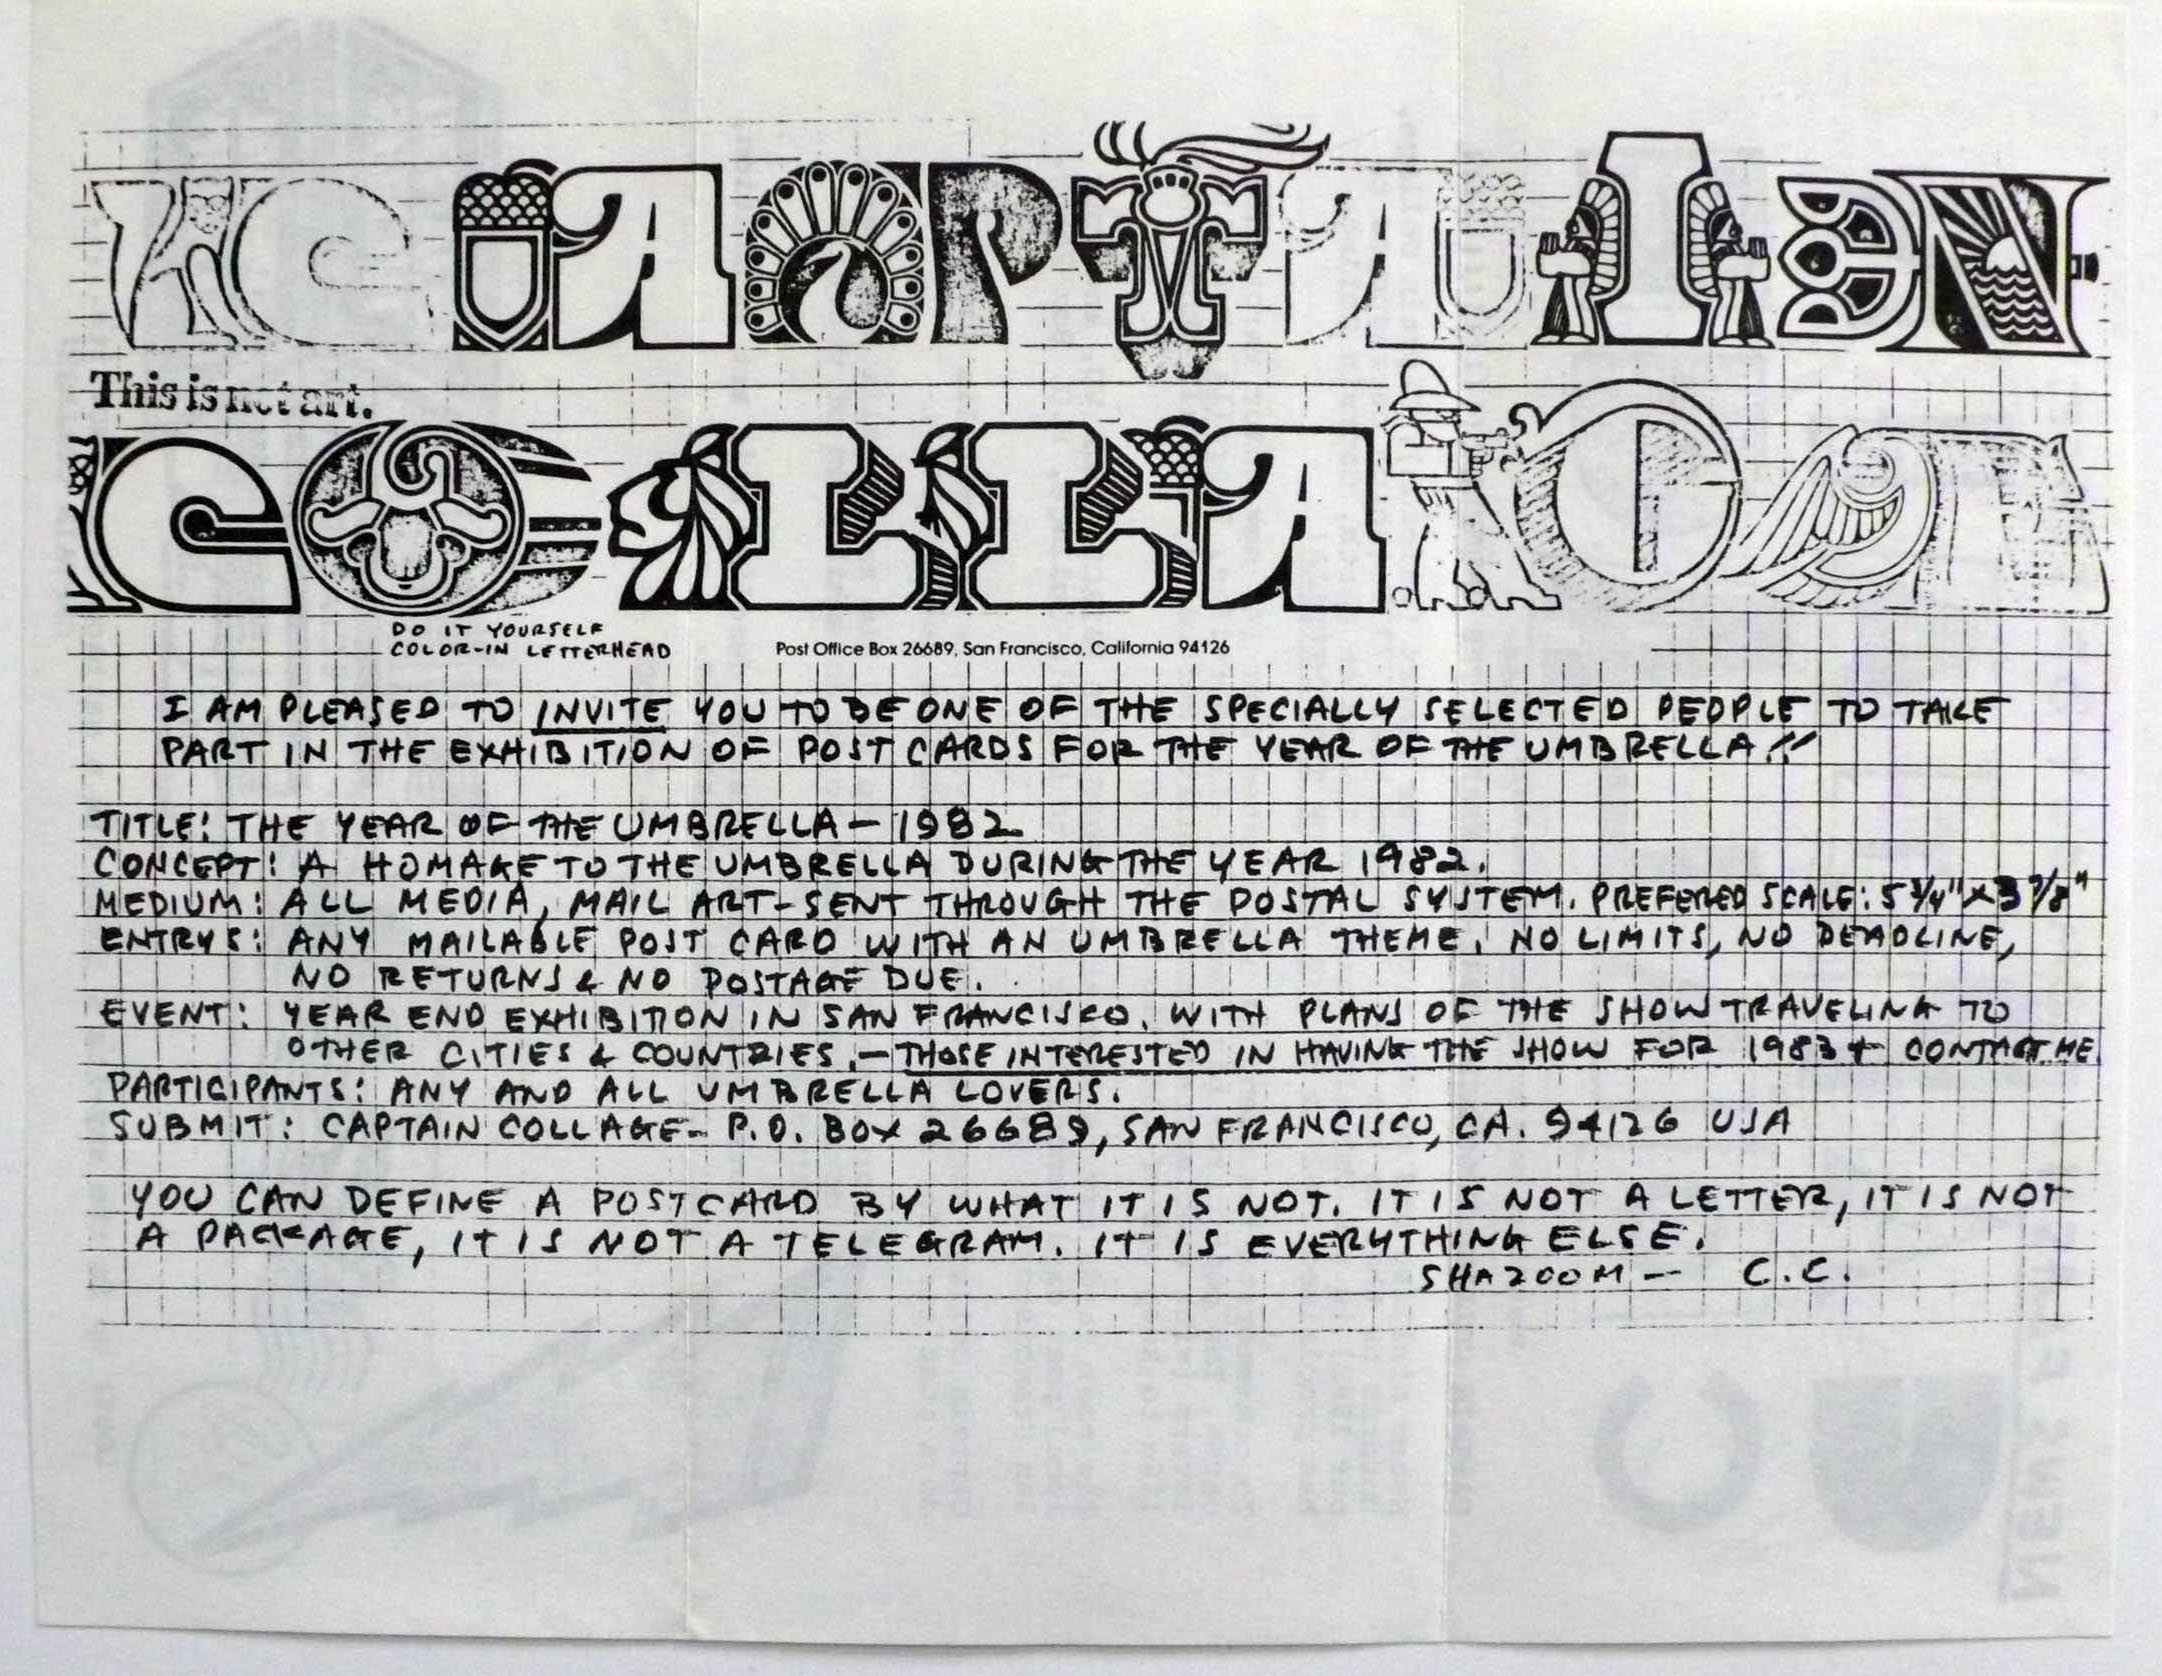 CAPTAIN
This is not art.
COLLAGE
DO IT YOURSELF
COLOR-IN LETTERHEAD
Post Office Box 26689, San Francisco, California 94126
I AM PLEASED TO INVITE YOU TO BE ONE OF THE SPECIALLY SELECTED PEOPLE TO TAKE
PART IN THE EXHIBITION OF POST CARDS FOR THE YEAR OF THE UMBRELLA!!
TITLE: THE YEAR OF THE UMBRELLA - 1982
CONCEPT: A HOMAGE TO THE UMBRELLA DURING THE YEAR 1982.
MEDIUM: ALL MEDIA, MAIL ART-SENT THROUGH THE POSTAL SYSTEM. PREFERED SCALE: 5 3/4" X 3 7/8"
ENTRYS: ANY MAILABLE POST CARD WITH AN UMBRELLA THEME. NO LIMITS, NO DEADLINE,
NO RETURNS & NO POSTAGE DUE.
EVENT: YEAR END EXHIBITION IN SAN FRANCISCO. WITH PLANS OF THE SHOW TRAVELING TO
OTHER CITIES & COUNTRIES. - THOSE INTERESTED IN HAVING THE SHOW FOR 1983 + CONTACT ME
PARTICIPANTS: ANY AND ALL UMBRELLA LOVERS.
SUBMIT: CAPTAIN COLLAGE - P.O. BOX 26689, SAN FRANCISCO, CA. 94126 USA
YOU CAN DEFINE A POSTCARD BY WHAT IT IS NOT. IT IS NOT A LETTER, IT IS NOT
A PACKAGE, IT IS NOT A TELEGRAM. IT IS EVERYTHING ELSE.
SHAZOOM - C.C.